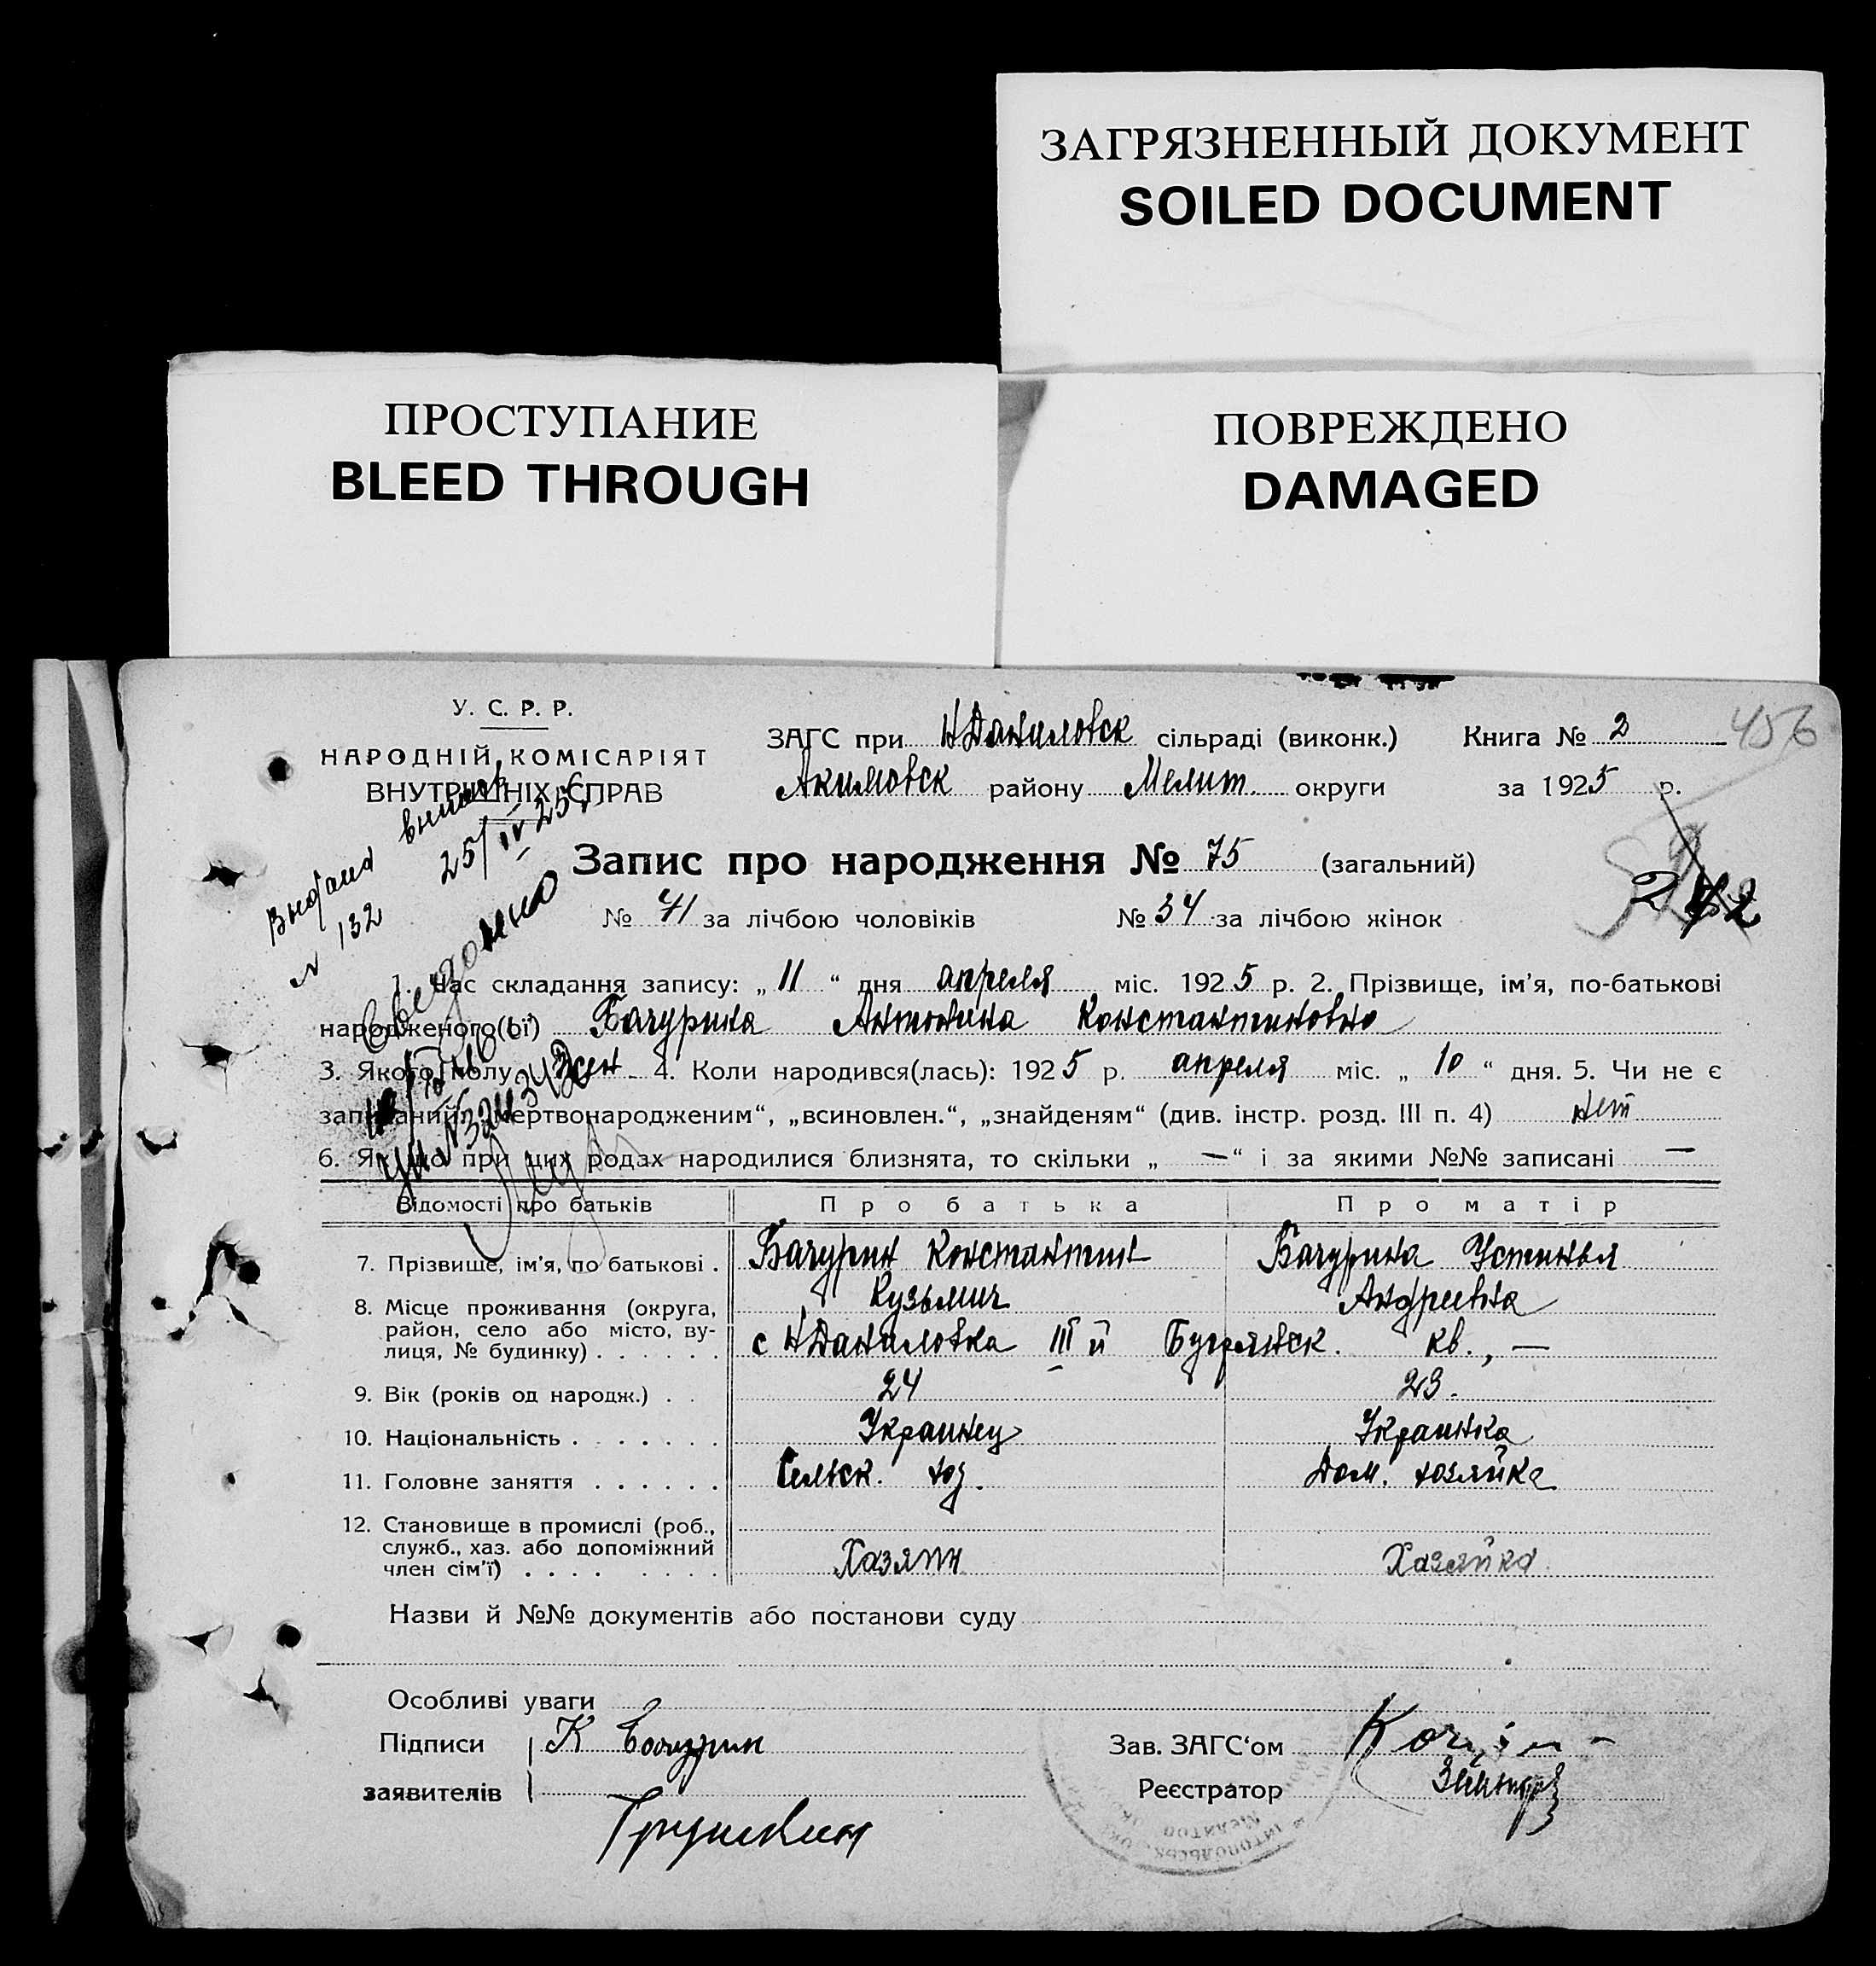 ЗАГРЯЗНЕННЫЙ ДОКУМЕНТ
SOILED DOCUMENT
ПРОСТУПАНИЕ
BLEED THROUGH
ПОВРЕЖДЕНО
DAMAGED
У. С. Р. Р.
НАРОДНІЙ КОМІСАРІЯТ
ВНУТРІШНІХ СПРАВ
ЗАГС при НДаниловск сільраді (виконк.) Книга № 2
456
Акимовск району Мелит. округи за 1925 р.
Выдана выпись
№ 132 25/IV 25 г.
Запис про народження № 75 (загальний)
242
№ 41 за лічбою чоловіків № 34 за лічбою жінок
1. Час складання запису: „ 11 “ дня апреля міс. 1925 р. 2. Прізвище, ім’я, по-батькові
народженого(ої) Бачурина Антонина Константиновна
3. Якого полу Жен. 4. Коли народився(лась): 1925 р. апреля міс. „ 10 “ дня. 5. Чи не є
записаний: „мертвонародженим“, „всиновлен.“, „знайденям“ (див. інстр. розд. III п. 4) нет
6. Якщо при цих родах народилися близнята, то скільки „ — “ і за якими №№ записані —
Відомості про батьків Про батька Про матір
7. Прізвище, ім’я, по батькові . Бачурин Константин Бачурина Устинья
Кузьмич Андреевна
8. Місце проживання (округа,
район, село або місто, ву-
лиця, № будинку) . . . . . . с НДаниловка III й Бугрянск. кв., —
9. Вік (років од народж.) . . 24 23.
10. Національність . . . . . . . Украинец Украинка
11. Головне заняття . . . . . . Сельск. хоз. Дом. хозяйка
12. Становище в промислі (роб.,
служб., хаз. або допоміжний
член сім’ї) . . . . . . . . Хазяин Хазяйка
Назви й №№ документів або постанови суду
Особливі уваги
Підписи К Бачурин Зав. ЗАГС‘ом
заявителів Реєстратор